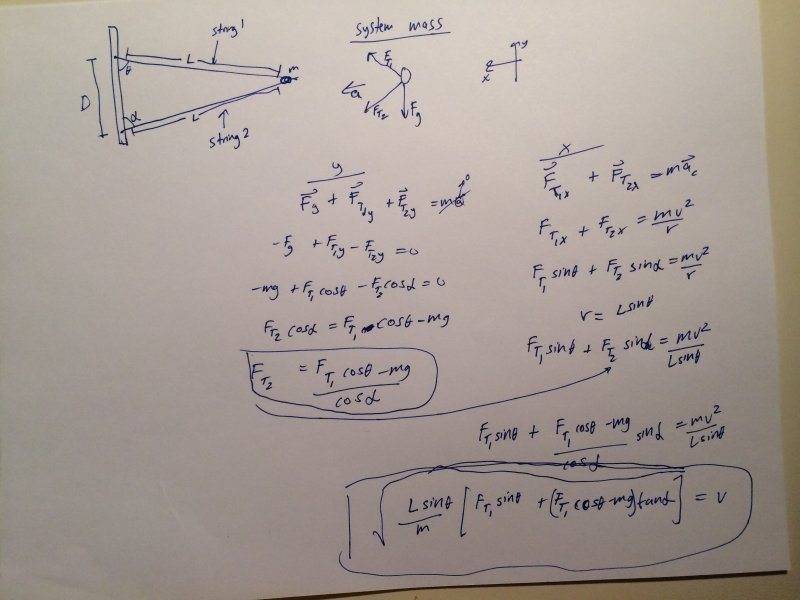 string 1
system mass
L
m
θ
D
α
L
string 2
F_T1
a⃗
F_T2
F_g
y
x
y
F⃗_g + F⃗_T1y + F⃗_T2y = ma⃗ 0
-F_g + F_T1y - F_T2y = 0
-mg + F_T1 cosθ - F_T2 cosα = 0
F_T2 cosα = F_T1 cosθ - mg
F_T2 = (F_T1 cosθ - mg)/cosα
x
F⃗_T1x + F⃗_T2x = ma⃗_c
F_T1x + F_T2x = mv²/r
F_T1 sinθ + F_T2 sinα = mv²/r
r = Lsinθ
F_T1 sinθ + F_T2 sinα = mv²/Lsinθ
F_T1 sinθ + (F_T1 cosθ - mg)/cosα sinα = mv²/Lsinθ
√(Lsinθ/m [F_T1 sinθ + (F_T1 cosθ - mg)tanα]) = v